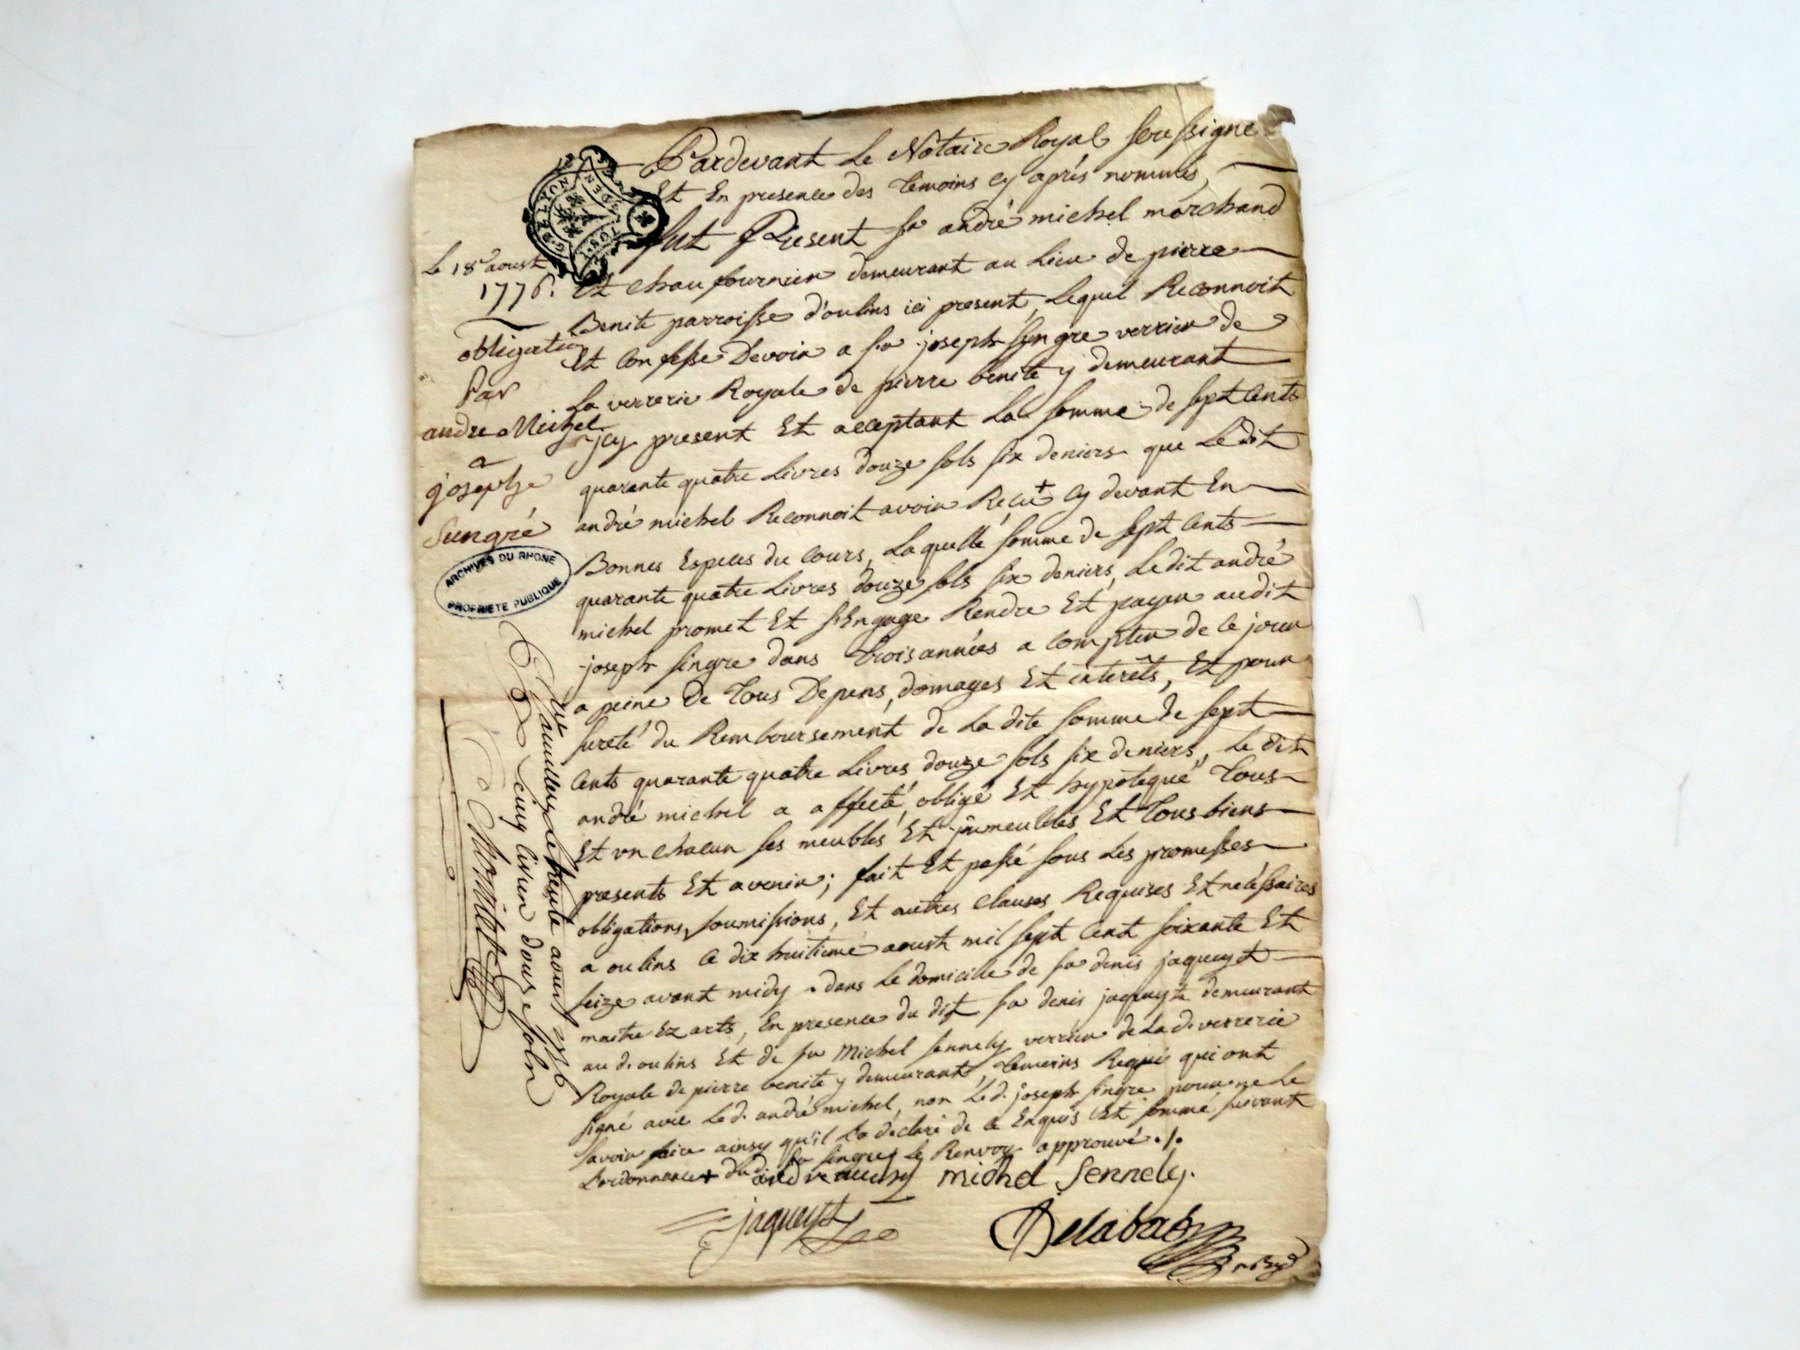 Pardevant Le Notaire Royal soussigné
Et En presence des temoins cy aprés nommés,
fut Present sr andré michel marchand
Et chaufournier demeurant au Lieu de pierre
Benite parroisse d'oulins ici present, Lequel Reconnoit
Et Confesse Devoir a sr joseph singre verrier de
La verrerie Royale de pierre benite y demeurant
icy present Et acceptant La somme de sept Cents
quarante quatre Livres douze sols six deniers que Le dit
andré michel Reconnoit avoir Reçu + cy devant En
Bonnes Especes du Cours, Laquelle somme de sept Cents
quarante quatre Livres douze sols six deniers, Le dit andré
michel promet Et s'Engage Rendre Et payer audit
joseph singre dans trois années a Compter de Ce jour
a peine De tous Depens, domages Et interêts, Et pour
sureté du Remboursement de La dite somme de sept
Cents quarante quatre Livres douze sols six deniers, Le dit
andré michel a affecté, obligé Et hypotequé tous
Et un chacun ses meubles Et immeubles Et tous biens
presents Et avenir; fait Et passé sous Les promesses
obligations, soumissions, Et autres Clauses Requises Et necessaires
a oulins Ce dix huitieme aoust mil sept Cent soixante Et
seize avant midy. dans Le domicille de sr denis jaqueyt
maitre Ez arts, En presence du dit sr denis jaqueyt demeurant
au d. oulins Et de sr Michel sennely verrier de La d. verrerie
Royale de pierre benite y demeurant, temoins Requis qui ont
signé avec Le d. andré michel, non Le d. joseph singre pour ne Le
savoir faire ainsy qu'il L'a declaré de Ce Enquis Et sommé suivant
L'ordonnance + dud. sr singre Le Renvoy approuvé ./.
michel Sennely.
jaqueyt
Delabat
GEN DE LYON
Le 18e aoust
1776.
obligation
Par
andre Michel
a
josephe
Sungré
ARCHIVES DU RHONE
PROPRIETE PUBLIQUE
le trente aoust 1776
cinq livres douze sols